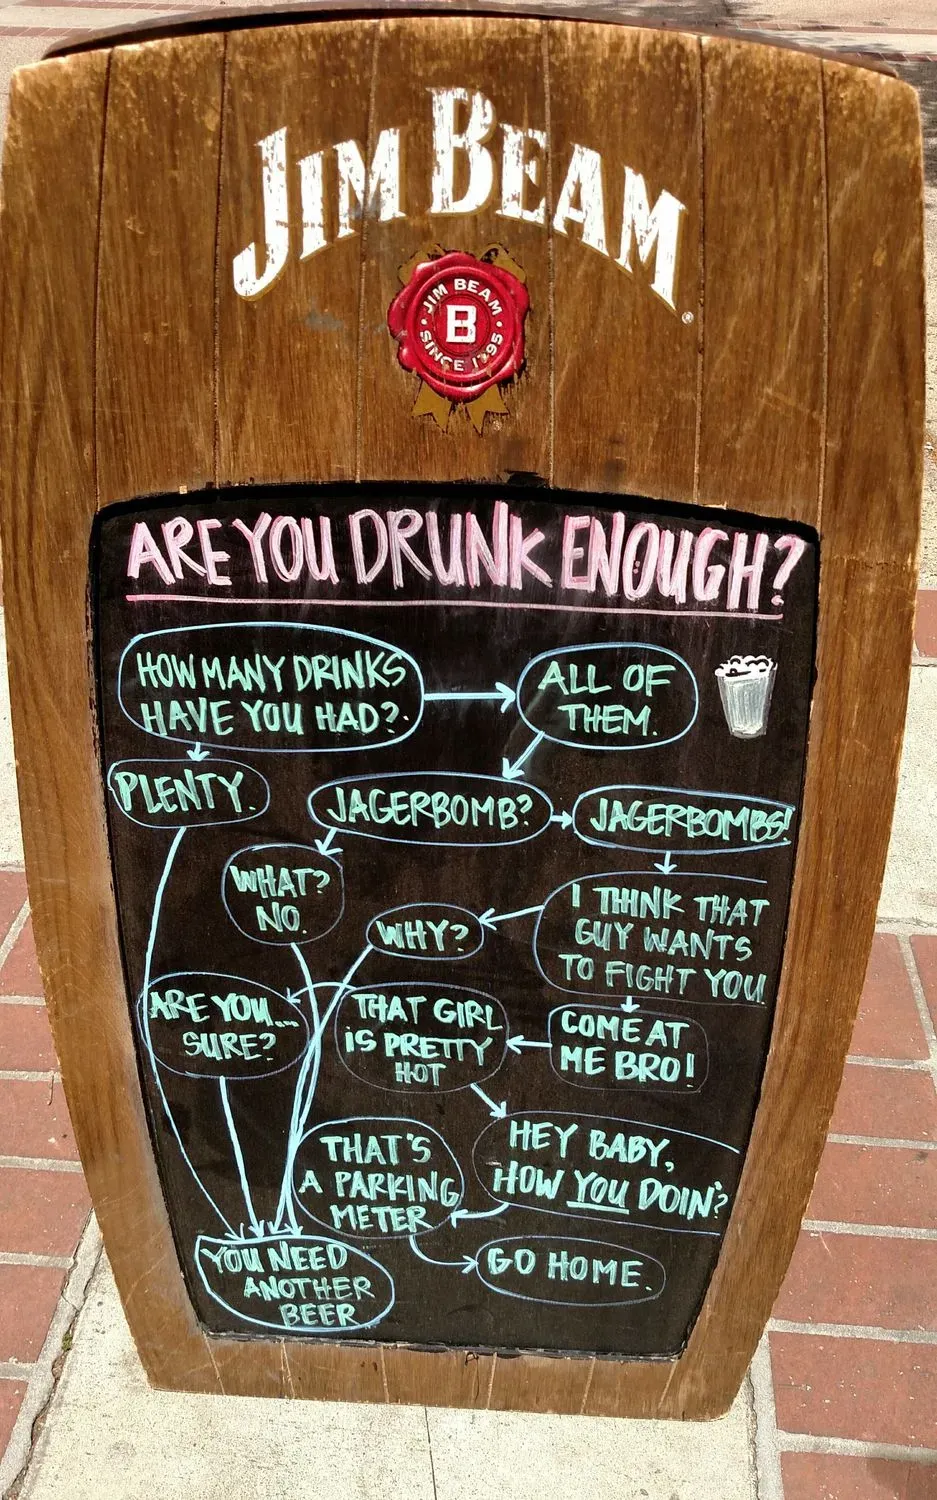 JIM BEAM
®
JIM BEAM
B
SINCE 1795
ARE YOU DRUNK ENOUGH?
HOW MANY DRINKS
HAVE YOU HAD?
ALL OF
THEM.
PLENTY.
JAGERBOMB?
JAGERBOMBS!
WHAT?
NO.
WHY?
I THINK THAT
GUY WANTS
TO FIGHT YOU.
ARE YOU...
SURE?
THAT GIRL
IS PRETTY
HOT
COME AT
ME BRO!
THAT'S
A PARKING
METER
HEY BABY,
HOW YOU DOIN'?
YOU NEED
ANOTHER
BEER
GO HOME.